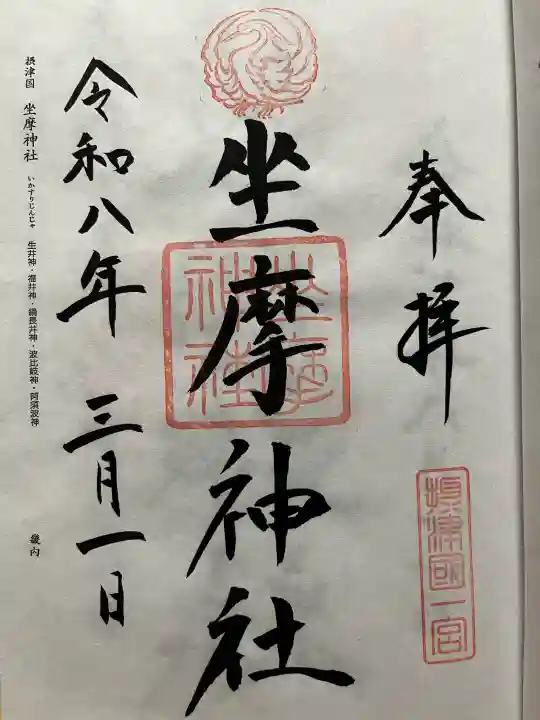 奉拝
摂津國一宮
坐摩神社
坐摩神社
令和八年 三月一日
摂津国 坐摩神社 いかすりじんじゃ 生井神・福井神・綱長井神・波比岐神・阿須波神 畿内